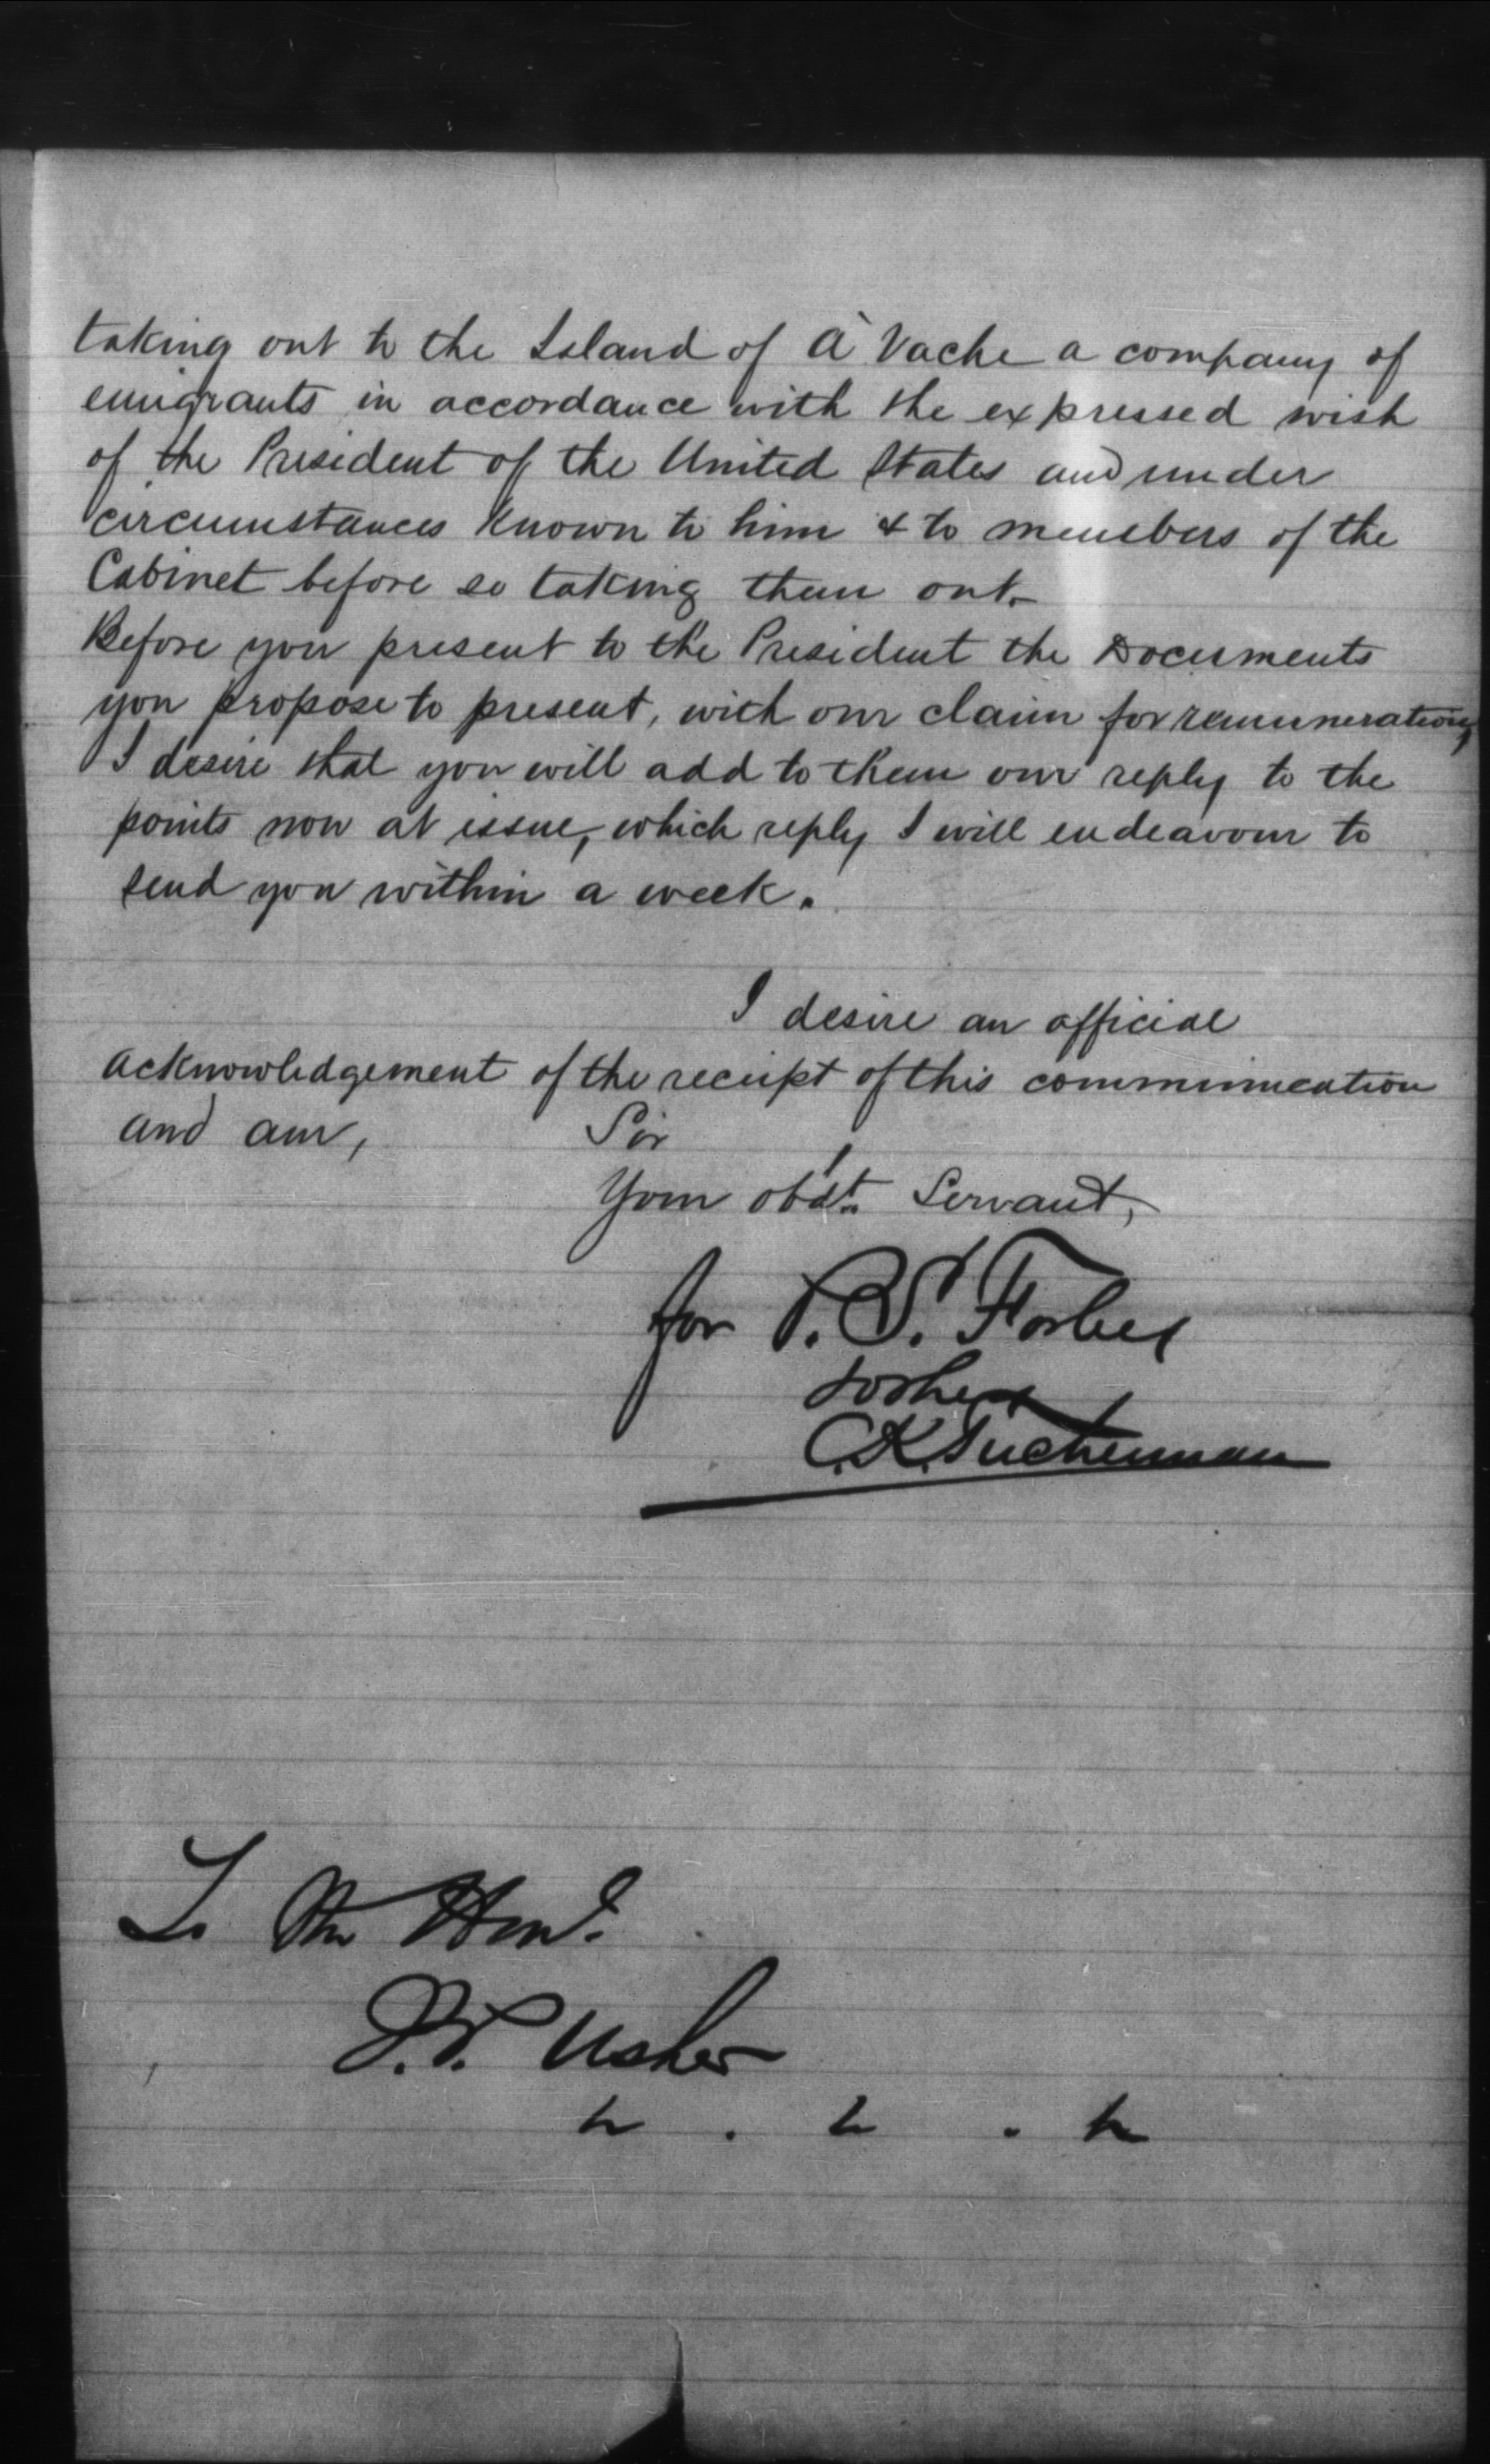 taking out to the Island of A' Vache a company of
emigrants in accordance with the expressed wish
of the President of the United States and under
circumstances known to him & to members of the
Cabinet before so taking them out.
Before you present to the President the Documents
you propose to present, with our claim for remuneration,
I desire that you will add to them our reply to the
points now at issue, which reply I will endeavour to
send you within a week.
I desire an official
acknowledgement of the receipt of this communication
and am, Sir
Your obdt. Servant,
for P. S. Forbes
C. K. Tuckerman
To the Honl.
J. P. Usher